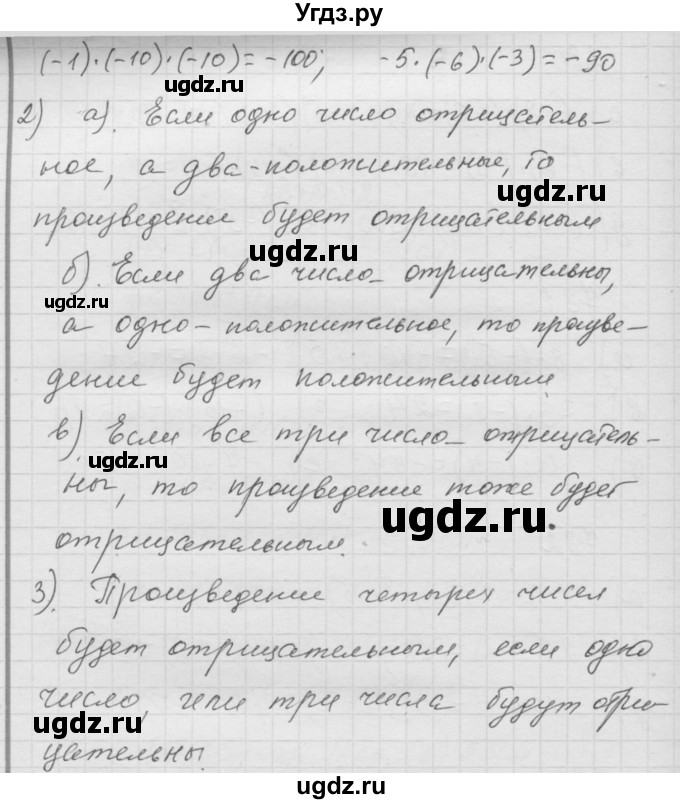 Угдз.ру
(-1)·(-10)·(-10)=-100; -5·(-6)·(-3)=-90
ugdz.ru
2) а). Если одно число отрицатель-
ное, а два-положительные, то
ugdz.ru
произведение будет отрицательным
ugdz.ru
б). Если два число- отрицательны,
ugdz.ru
а одно-положительное, то произве-
дение будет положительным
в). Если все три число- отрицатель-
ugdz.ru
ны, то произведение тоже будет
ugdz.ru
отрицательным.
3). Произведение четырех чисел
будет отрицательным, если одно
число, или три числа будут отри-
ugdz.ru
ugdz.ru
цательны.
ugdz.ru